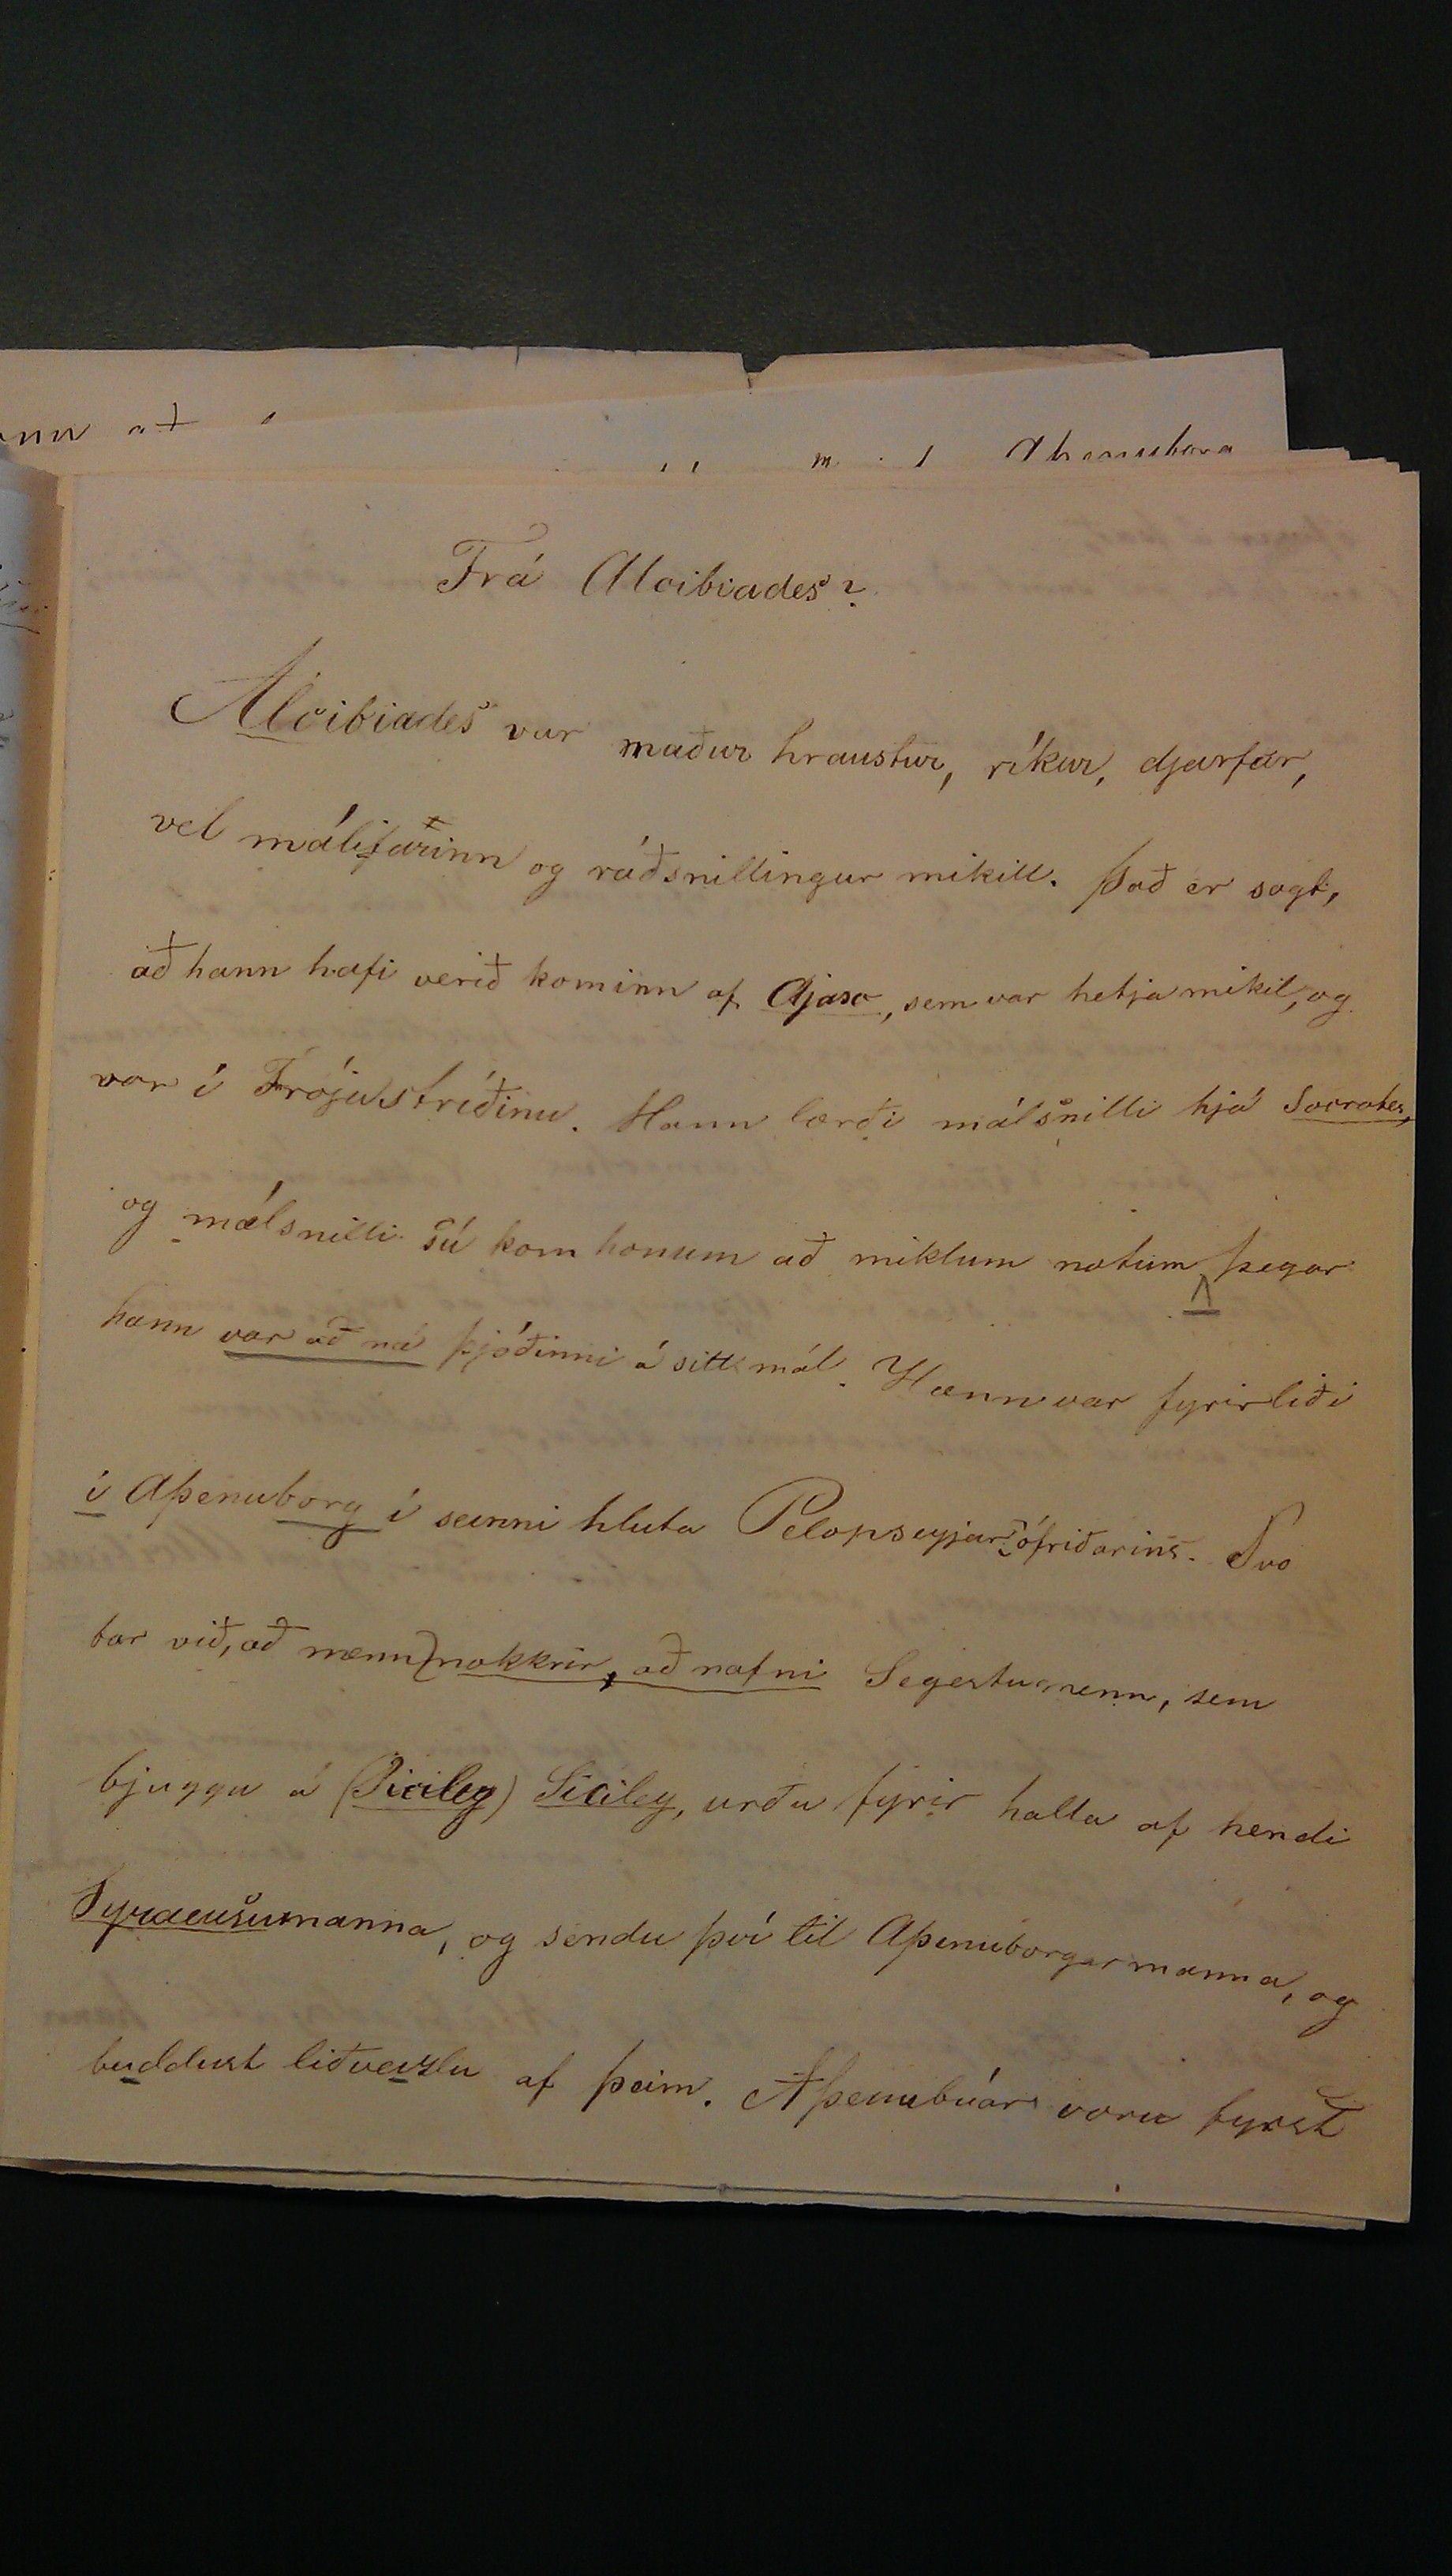 Frá Alcibiades?
Alcibiades var maður hraustur, ríkur, djarfur,
vel málifarinn og ráðsnillingur mikill. Það er sagt,
að hann hafi verið kominn af Ajasc, sem var hetja mikil, og
var í Trójustríðinu. Hann lærði málsnilli hjá Socrates,
og málsnilli sú kom honum að miklum notum þegar
hann var að ná þjóðinni á sitt mál. Hann var fyrirliði
í Aþenuborg í seinni hluta Pelopseyjar-ófriðarins. Svo
bar við, að menn nokkrir, að nafni Segestumenn, sem
bjuggu á (Siciley) Siciley, urðu fyrir halla af hendi
Syracusumanna, og sendu því til Aþenuborgarmanna, og
buddust liðveizlu af þeim. Aþenubúar voru fyrst